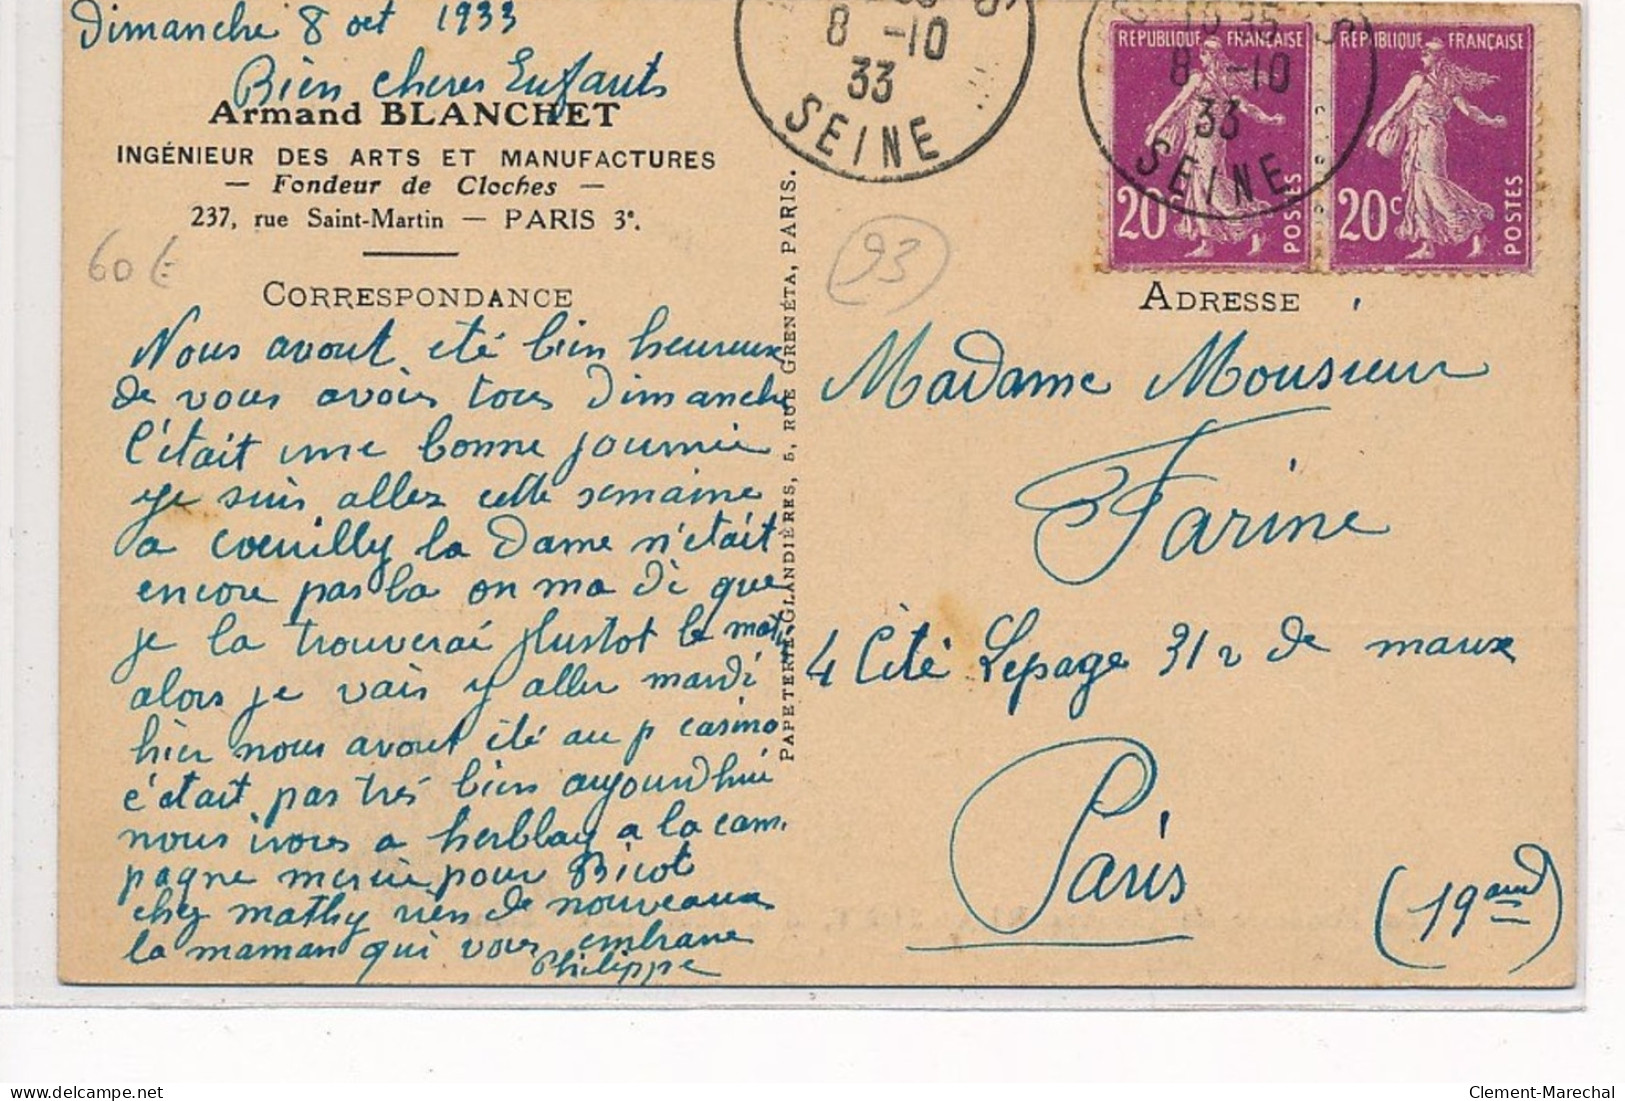 Dimanche 8 oct 1933
Bien cheres Enfants
Armand BLANCHET
INGÉNIEUR DES ARTS ET MANUFACTURES
— Fondeur de Cloches —
237, rue Saint-Martin — PARIS 3e.
60 €
CORRESPONDANCE
Nous avont eté bien heureux
de vous avoir tous Dimanche
C'était une bonne journée
je suis allez cette semaine
a coeuilly la Dame n'était
encore pas la on ma di que
je la trouverai plustot le matin
alors je vais y aller mardi
hier nous avont été au p casino
c'était pas trés bien aujourdhui
nous irons a herblay a la cam.
pagne mercie pour Bicot
chez mathy rien de nouveaux
la maman qui vous embrasse
Philippe
PAPETERIE GLANDIÈRES, 5, RUE GRENÉTA, PARIS.
8 -10
33
SEINE
10 35
8 -10
33
SEINE
RÉPUBLIQUE FRANÇAISE
20c
POSTES
RÉPUBLIQUE FRANÇAISE
20c
POSTES
93
ADRESSE
Madame Monsieur
Farine
4 Cité Lepage 31 r de maux
Paris
(19 arrd)
delcampe.net
Clement-Marechal